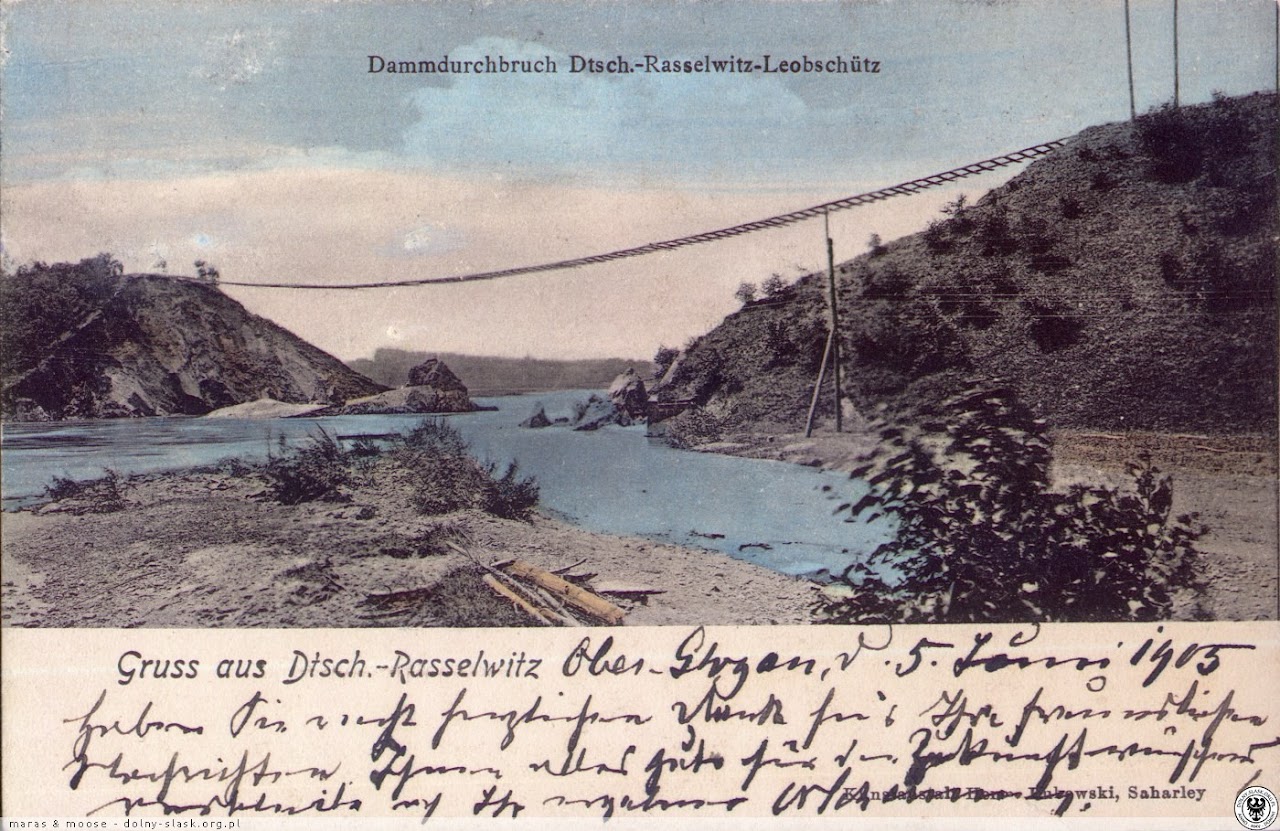 Dammdurchbruch Dtsch.-Rasselwitz-Leobschütz
Gruss aus Dtsch.-Rasselwitz Ober-Glogau, d. 5. Juni 1905
Haben Sie recht herzlichen Dank für Ihre freundlichen
Nachrichten. Ihnen alles Gute für die Zukunft wünschend
verbleibe ich Ihr ergebener
Kunstanstalt Lukowski, Saharley
maras & moose - dolny-slask.org.pl